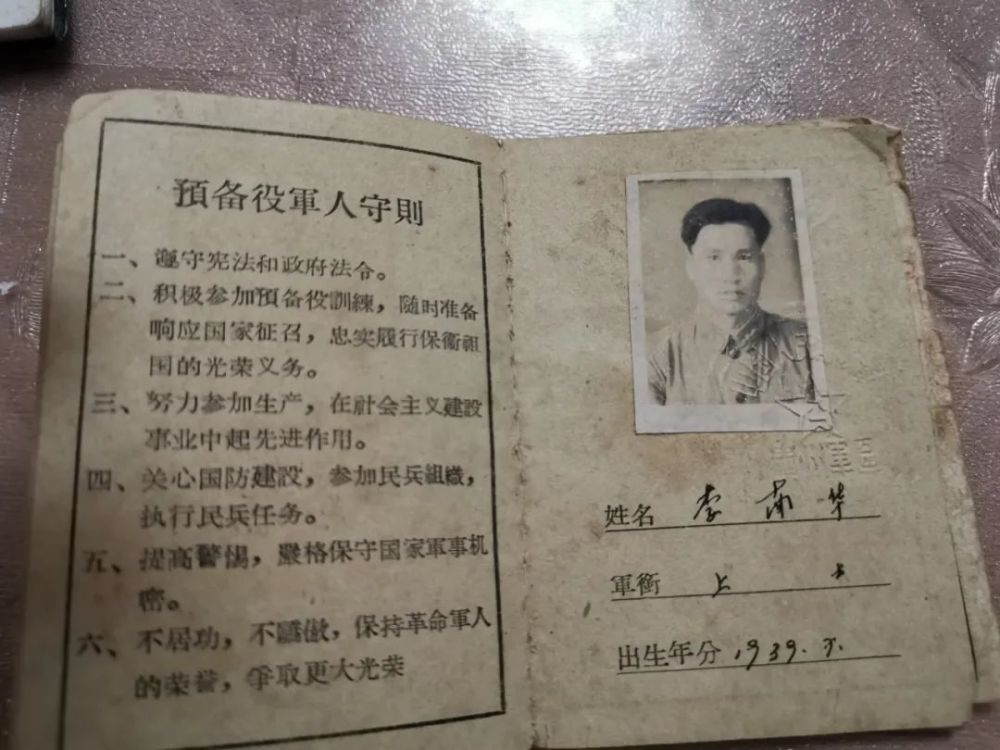 預备役軍人守則
一、遵守宪法和政府法令。
二、积极参加預备役訓練，随时准备
响应国家征召，忠实履行保衞祖
国的光荣义务。
三、努力参加生产，在社会主义建設
事业中起先进作用。
四、关心国防建設，参加民兵組織，
执行民兵任务。
五、提高警惕，嚴格保守国家軍事机
密。
六、不居功，不驕傲，保持革命軍人
的荣誉，爭取更大光荣
軍区
姓名 李南华
軍銜 上士
出生年分 1939.